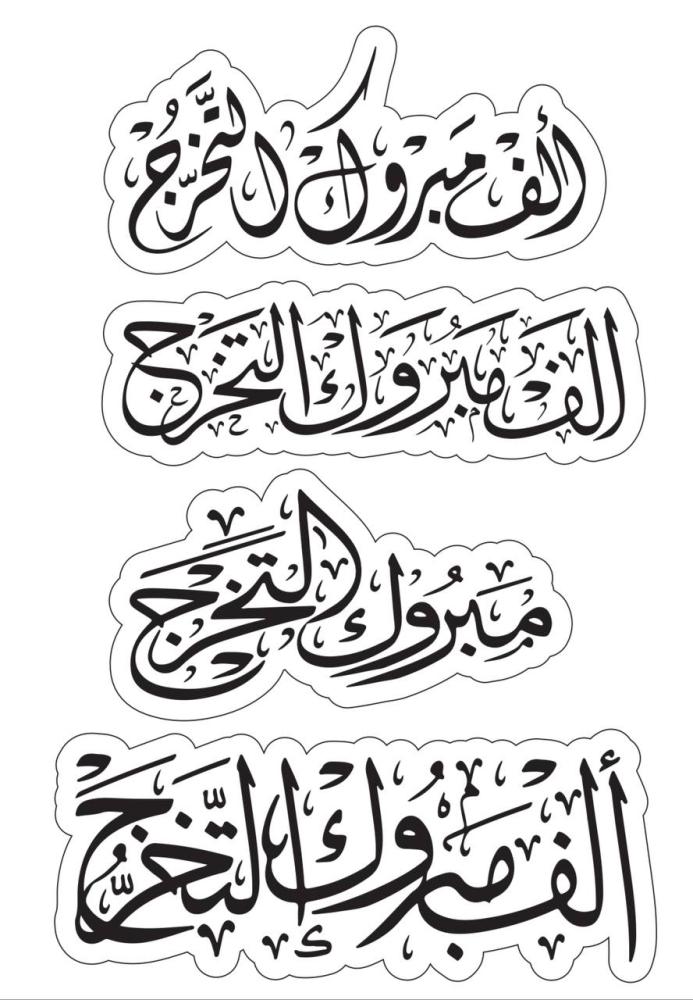 ألف مبروك التخرج
الف مبروك التخرج
مبروك التخرج
ألف مبروك التخرج